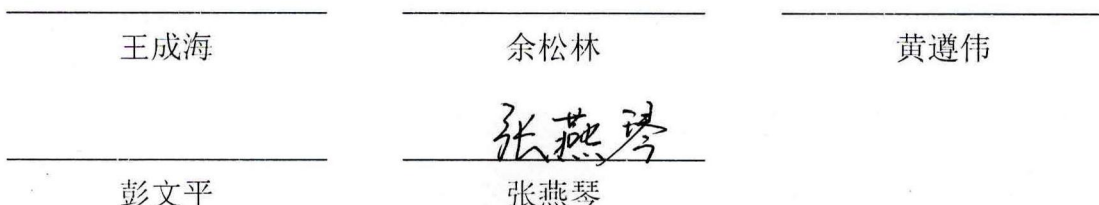 王成海 余松林 黄遵伟
张燕琴
彭文平 张燕琴